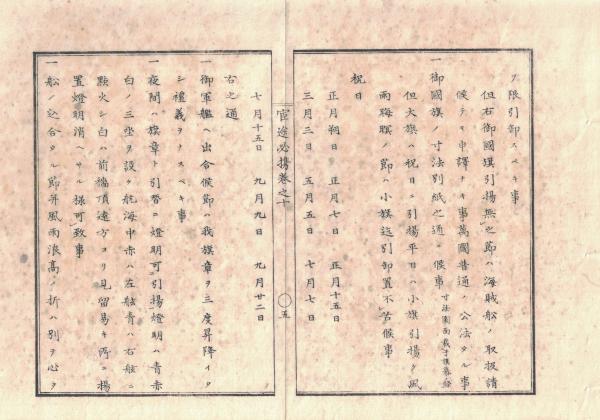 ヲ限引卸スベキ事
但右御國旗引揚無之節ハ海賊船ノ取扱請
候テモ申譯ナキ事萬國普通ノ公法タル事
一御國旗ノ寸法別紙之通ニ候事
但大旗ハ祝日ニ引揚平日ハ小旗引揚ク風
雨晦暝ノ節ハ小旗迄引卸置不苦候事
祝日
正月朔日 正月七日 正月十五日
三月三日 五月五日 七月七日
官途必携卷之十
五
七月十五日 九月九日 九月廿二日
右之通
一御軍艦ヘ出合候節ハ我旗章ヲ三度昇降イタ
シ禮義ヲナスベキ事
一夜間ハ旗章ト引替ニ燈明可引揚燈明ハ青赤
白ノ三坐ヲ設ク航海中赤ハ左舷青ハ右舷ニ
點火シ白ハ前檣頂遠方ヨリ見留易キ所ニ揚
置燈明消ヘサル樣可致事
一船ノ込合タル節并風雨浪高ノ折ハ別ヲ心ヲ